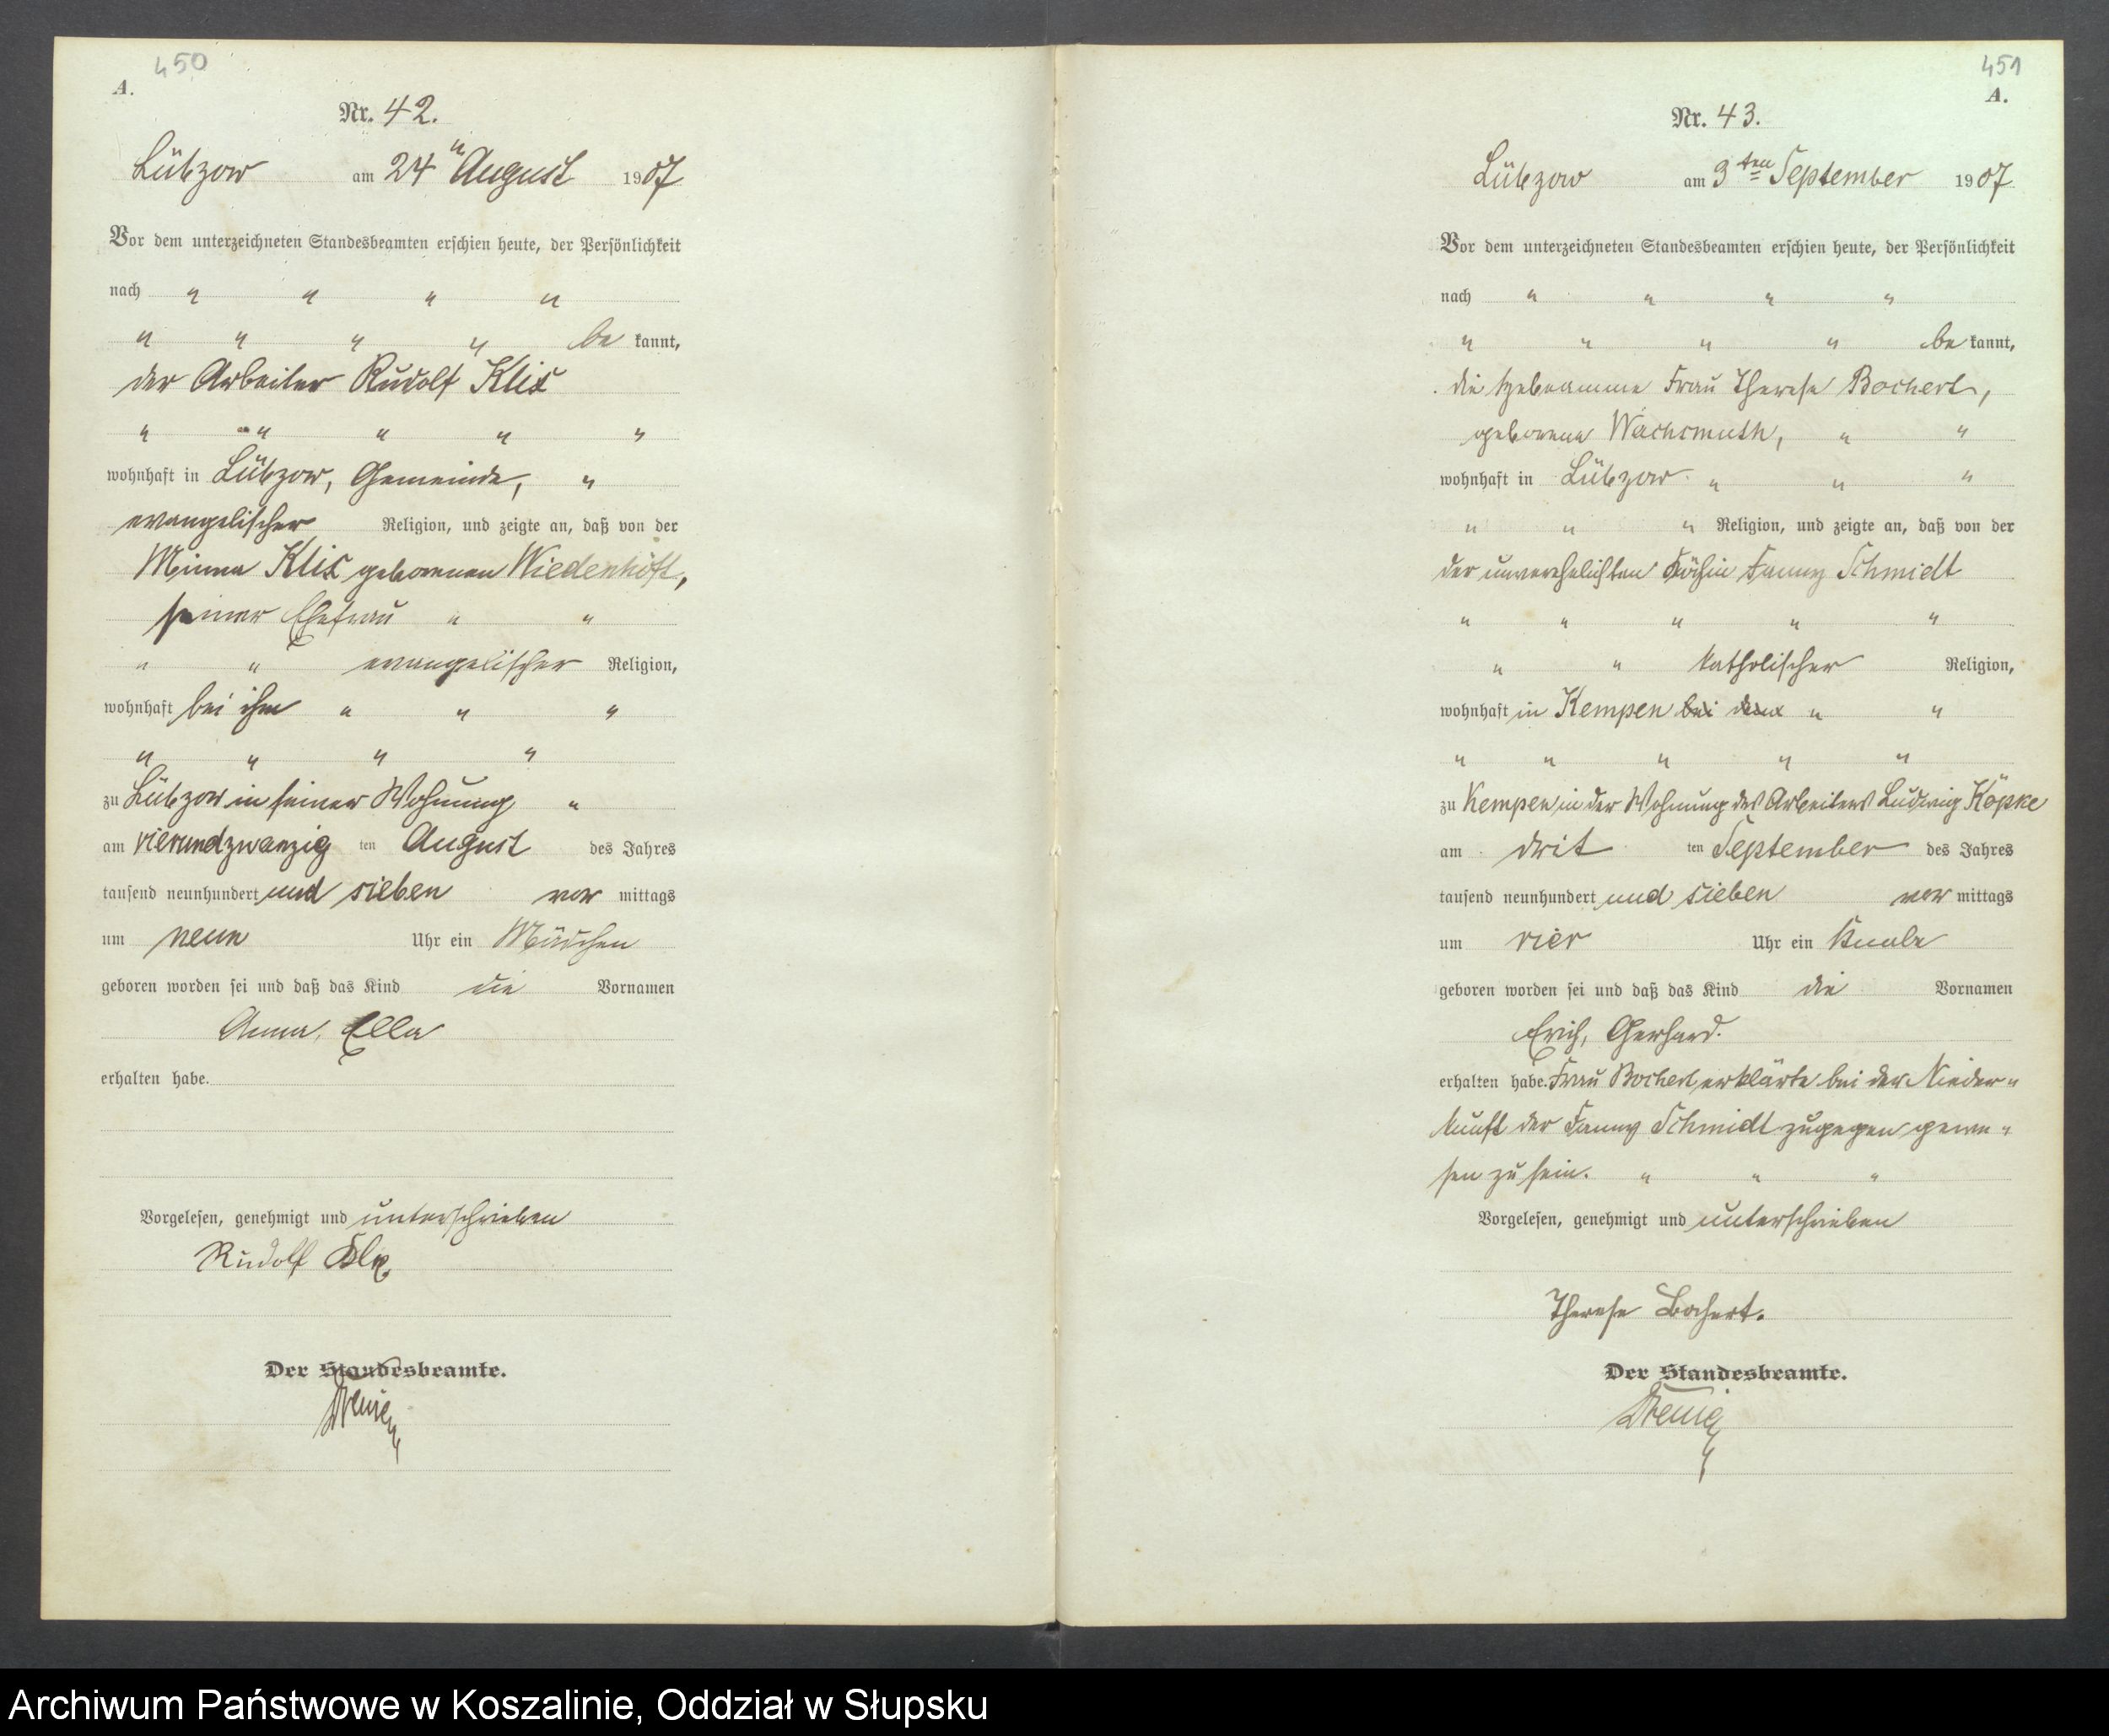 450
A.
Nr. 42.
Lübzow am 24ten August 1907
Vor dem unterzeichneten Standesbeamten erschien heute, der Persönlichkeit
nach " " " "
" " " " be kannt,
der Arbeiter Rudolf Klix
" " " " "
wohnhaft in Lübzow, Gemeinde, "
evangelischer Religion, und zeigte an, daß von der
Minna Klix geborenen Wiedenhöft,
seiner Ehefrau " "
" " evangelischer Religion,
wohnhaft bei ihm " " "
" " " "
zu Lübzow in seiner Wohnung "
am vierundzwanzig ten August des Jahres
tausend neunhundert und sieben vor mittags
um neun Uhr ein Mädchen
geboren worden sei und daß das Kind die Vornamen
Anna, Ella
erhalten habe.
Vorgelesen, genehmigt und unterschrieben
Rudolf Klix
Der Standesbeamte.
451
A.
Nr. 43.
Lübzow am 3ten September 1907
Vor dem unterzeichneten Standesbeamten erschien heute, der Persönlichkeit
nach " " " "
" " " " be kannt,
die Hebeamme Frau Therese Bochert,
geborene Wachsmuth, " "
wohnhaft in Lübzow " " "
" " " Religion, und zeigte an, daß von der
der unverehelichten Köchin Fanny Schmidt
" " " " "
" " katholischer Religion,
wohnhaft in Kempen bei dem " "
" " " " "
zu Kempen in der Wohnung des Arbeiters Ludwig Köpke
am drit ten September des Jahres
tausend neunhundert und sieben vor mittags
um vier Uhr ein Knabe
geboren worden sei und daß das Kind die Vornamen
Erich, Gerhard.
erhalten habe. Frau Bochert erklärte bei der Nieder"
kunft der Fanny Schmidt zugegen gewe"
sen zu sein. " " "
Vorgelesen, genehmigt und unterschrieben
Therese Bochert.
Der Standesbeamte.
Archiwum Państwowe w Koszalinie, Oddział w Słupsku